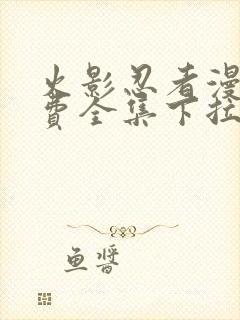 火影忍者漫
费全集下拉
鱼酱